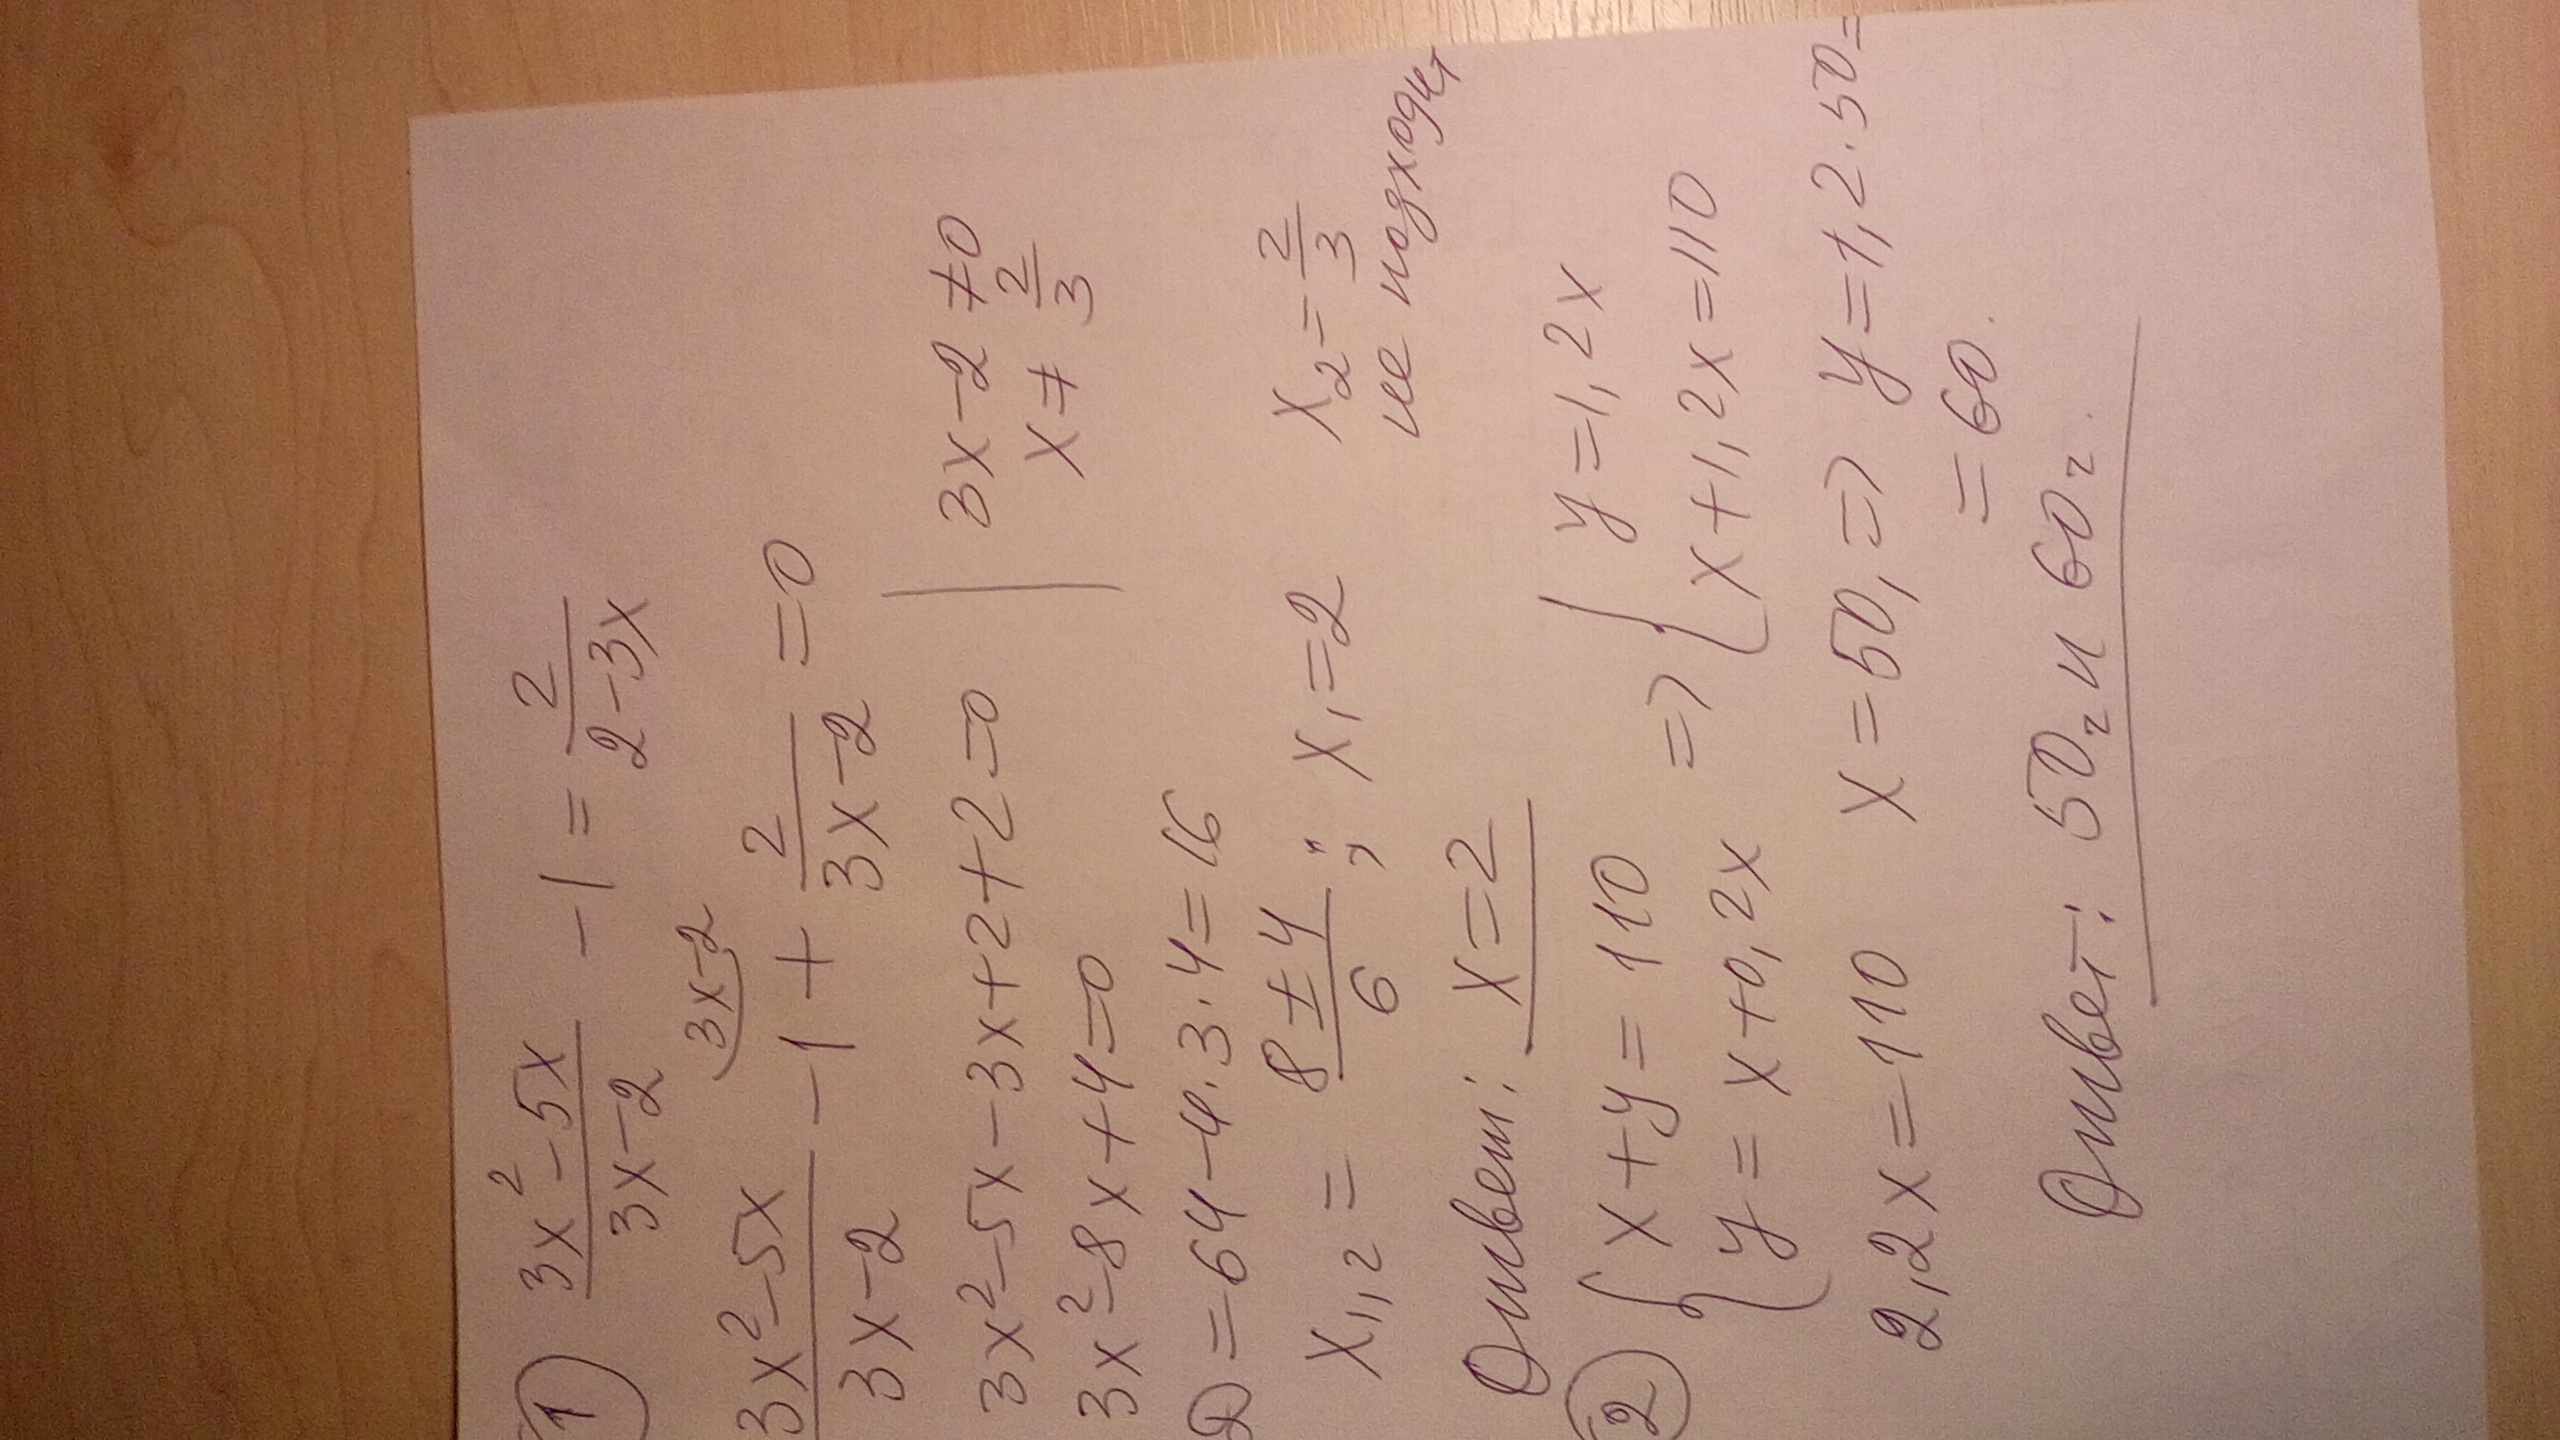 1) (3x²-5x)/(3x-2) - 1 = 2/(2-3x)
(3x²-5x)/(3x-2) - 1^(3x-2) + 2/(3x-2) = 0
3x²-5x-3x+2+2=0 | 3x-2≠0
3x²-8x+4=0 x≠2/3
D=64-4·3·4=16
x₁,₂ = (8±4)/6 ; x₁=2 x₂=2/3
не подходит
Ответ: x=2
2) { x+y=110 => { y=1,2x
y=x+0,2x x+1,2x=110
2,2x=110 x=50, => y=1,2·50=
=60.
Ответ: 50г и 60г.